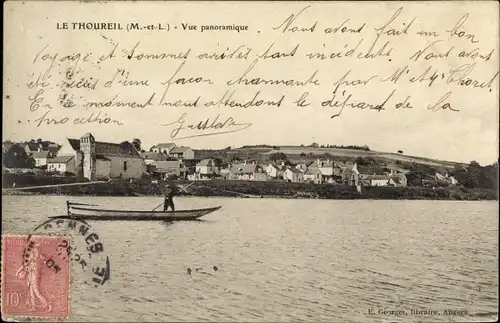 LE THOUREIL (M.-et-L.) — Vue panoramique
Nous avons fait un bon
Voyage et sommes arrivés sans incidents. Nous avons
été reçus d'une façon charmante par M. et Mme
En ce moment nous attendons le départ de la
procession
Gustave
10
RENNES
E. Georges, libraire, Angers